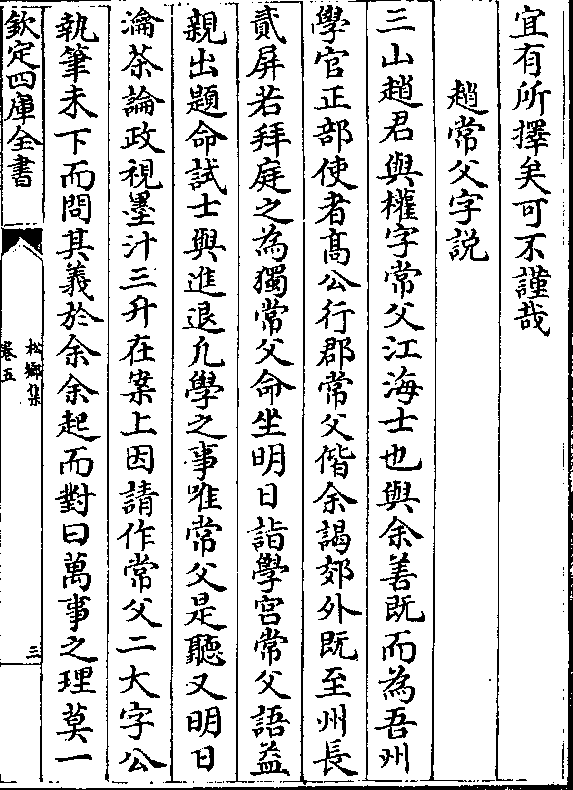 宜有所擇矣可不謹哉
趙常父字説
三山趙君與權字常父江海士也與余善既而為吾州
學官正部使者高公行郡常父偕余謁郊外既至州長
貳屏若拜庭之為獨常父命坐明日詣學宫常父語益
親出題命試士與進退凢學之事唯常父是聽又明日
瀹茶論政視墨汁三升在案上因請作常父二大字公
執筆未下而問其義於余余起而對曰萬事之理莫一
欽定四庫全書
松鄉集
卷五
三